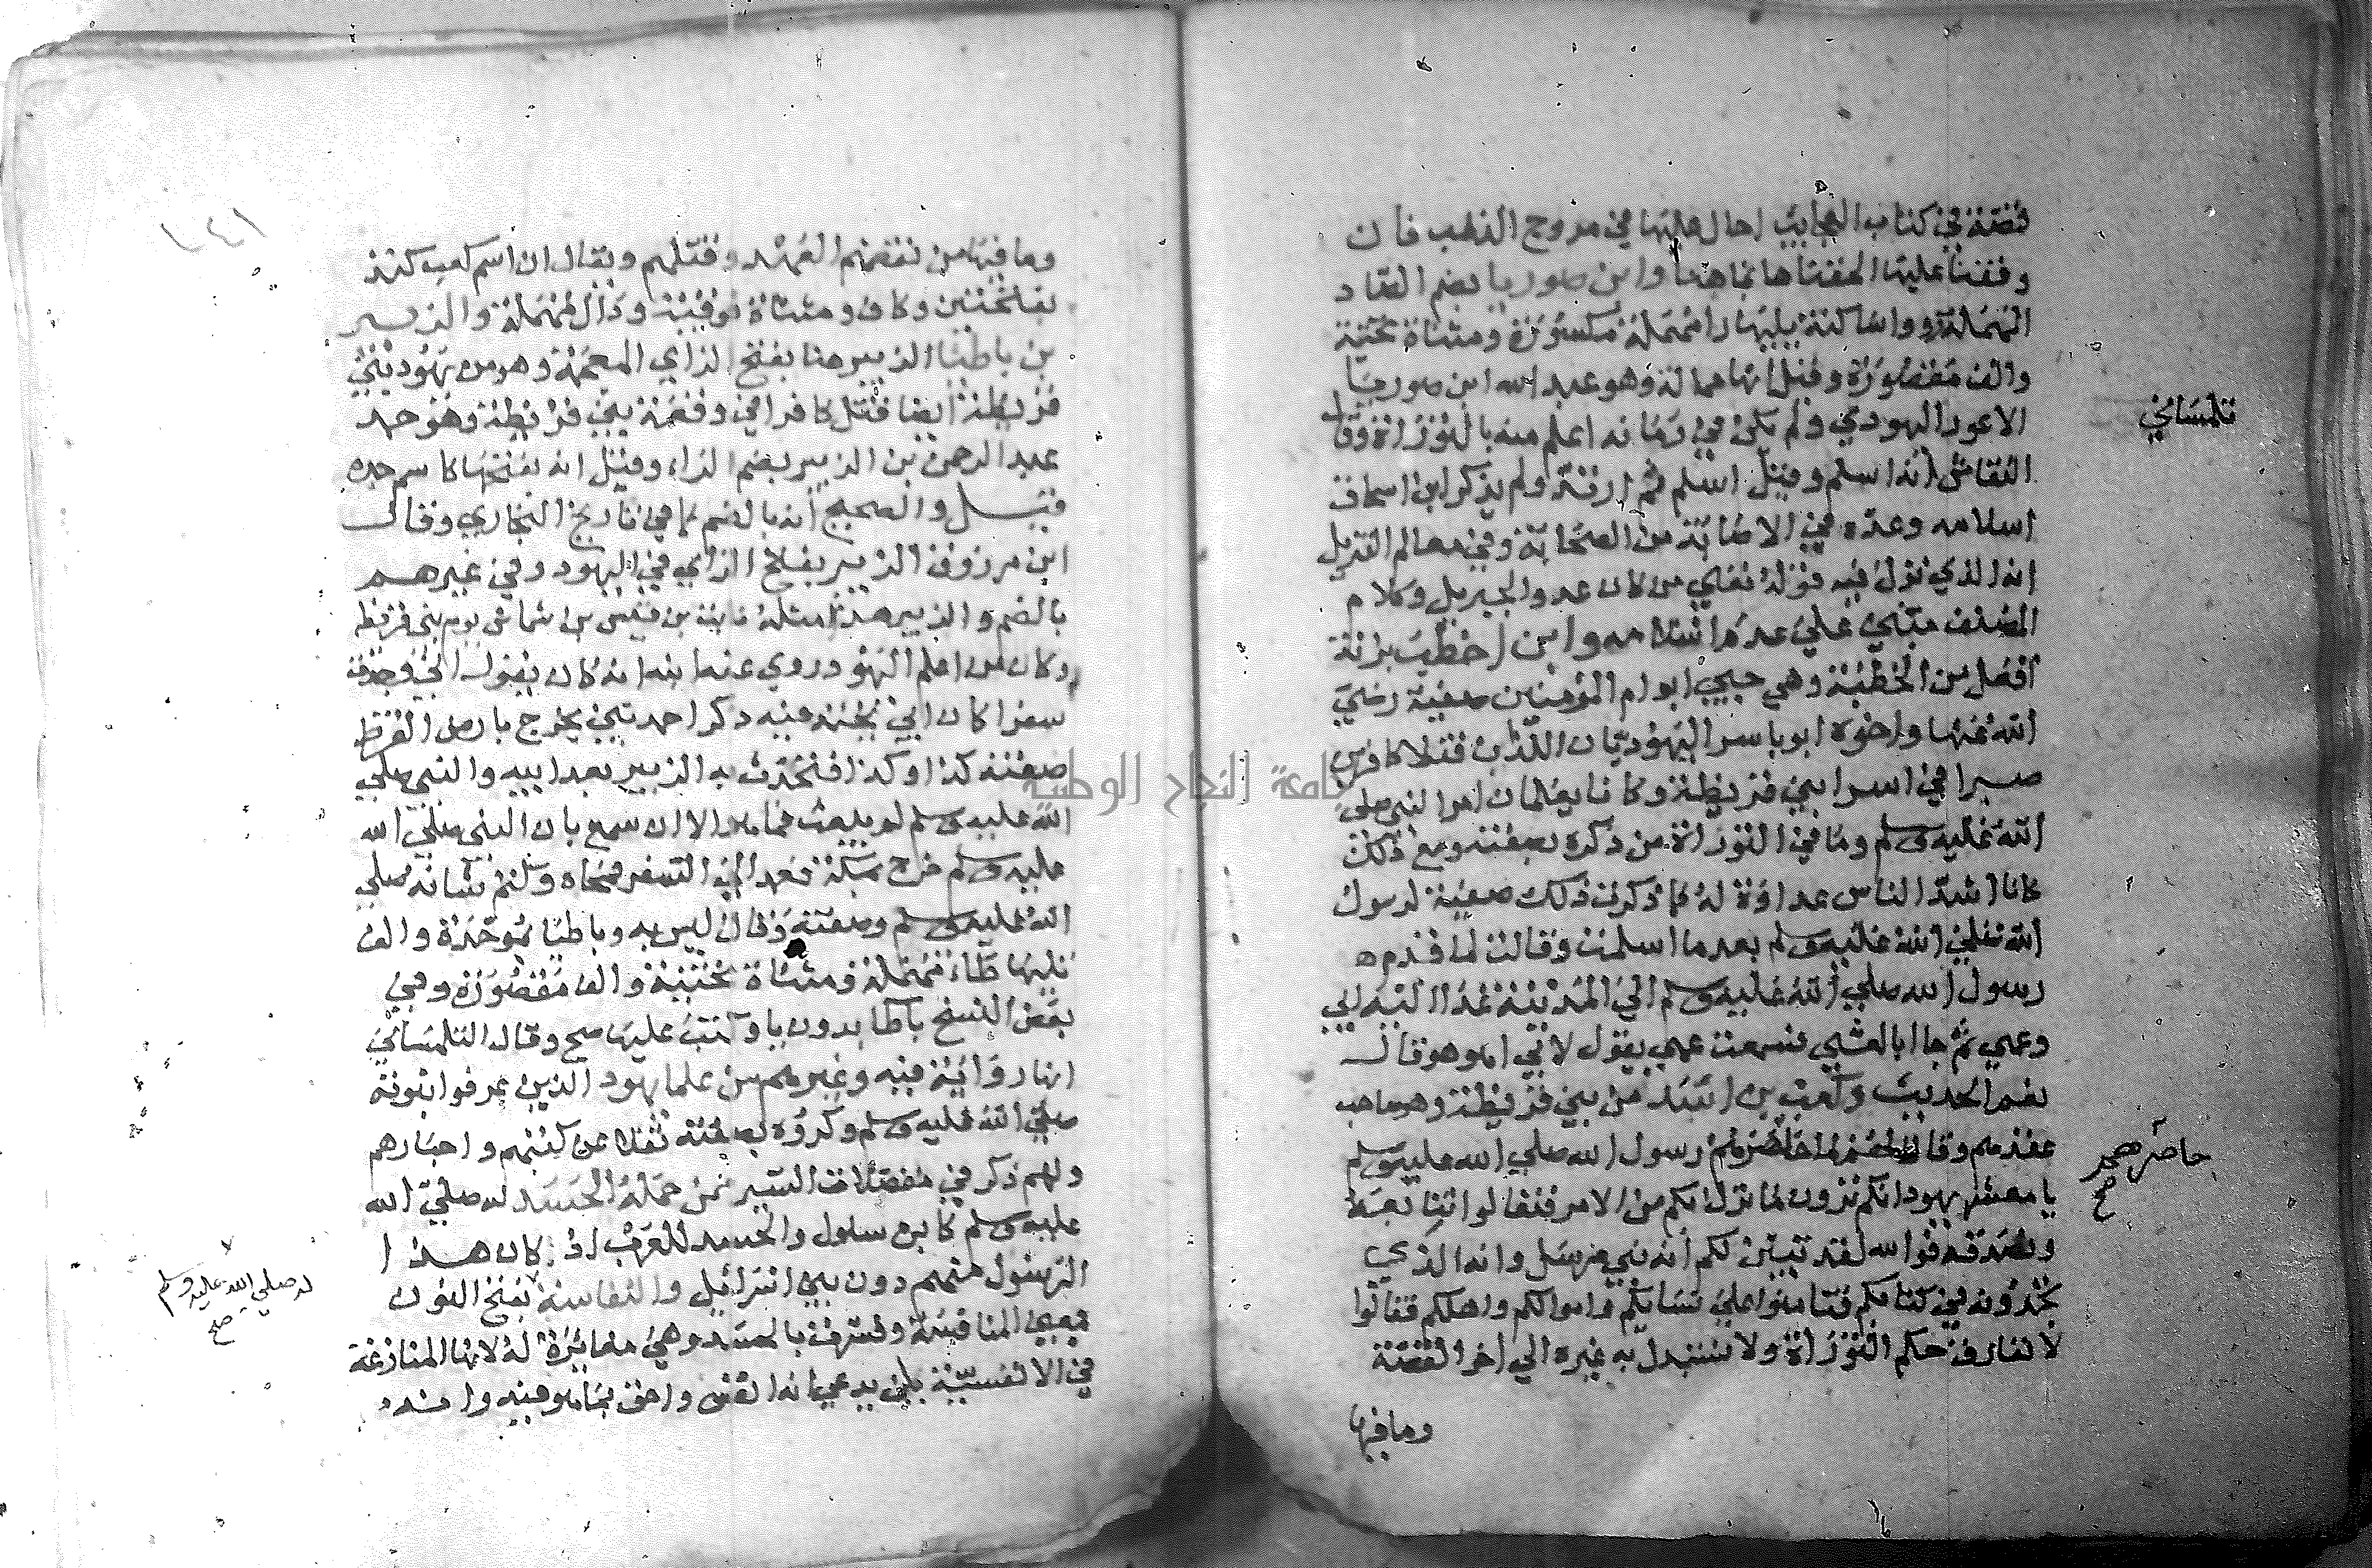 قصته في كتاب العجايب احال عليها في مروج الذهب فان
وقفنا عليها الحقناها بما هنا وابن صوريا بضم الصاد
المهملة وواو ساكنة يليها را مهملة مكسورة ومثناة تحتية
والف مقصورة وقيل انها ممالة وهو عبد الله ابن صوريا
الاعور اليهودي ولم يكن في زمانه اعلم منه بالتوراة وقال
تلمساني
النقاش انه اسلم وقيل اسلم ثم ارتد ولم يذكر ابن اسحاق
اسلامه وعده في الاصابة من الصحابة وفي معالم التنزيل
انه الذي نزل فيه قوله تعالى من كان عدوا لجبريل وكلام
المصنف مبني على عدم اسلامه وابن اخطب بزنة
افعل من الخطبة وهي حيي ابو ام المؤمنين صفية رضي
الله عنها واخوه ابو ياسر اليهوديان اللذان قتلا كافرين
صبرا في اسرا بني قريظة وكانا يعلمان امر النبي صلى
الله عليه وسلم وما في التوراة من ذكره بصفته ومع ذلك
كانا اشد الناس عداوة له كما ذكرت ذلك صفية لرسول
الله صلى الله عليه وسلم بعد ما اسلمت وقالت لما قدم
رسول الله صلي الله عليه وسلم الي المدينة غدا اليه ابي
وعمي ثم جاا بالعشي فسمعت عمي يقول لابي اهو هو قال
نعم الحديث وكعب بن اسد من بني قريظة وهو صاحب
عقدهم وقال لهم لما حاضرهم رسول الله صلي الله عليه وسلم
حاصرهم
صح
يا معشر يهود انكم ترون لما نزل بكم من الامر فتعالوا نتبعه
ونصدقه فوالله لقد تبين لكم انه نبي مرسل وانه الذي
تجدونه في كتابكم فتامنوا علي نسايكم واموالكم واهلكم فقالوا
لا نفارق حكم التوراة ولا نستبدل به غيره الي اخر القصة
وما فيها
وما فيها من نقضهم العهد وقتلهم ويقال ان اسم كعب كتد
بفتحتين وكاف ومثناة فوقية ودال مهملة والزبير
بن باطيا الزبير هنا بفتح الزاي المعجمة وهو من يهود بني
قريظة ايضا قتل كافرا في وقعة بني قريظة وهو جد
عبد الرحمن بن الزبير بضم الزاء وقيل انه بفتحها كاسم جده
قيل والصحيح انه بالضم كما في تاريخ البخاري وقال
ابن مرزوق الزبير بفتح الزاي في اليهود وفي غيرهم
بالضم والزبير هذا قتله ثابت بن قيس بن شماس يوم بني قريظة
وكان من اعلم اليهود روي عنه ابنه انه كان يقول اني وجدت
سفرا كان ابي يختمه عنيه ذكر احمد نبي يخرج بارض القرظ
صفته كذا وكذا فتحدث به الزبير بعد ابيه والنبي صلي
الله عليه وسلم لم يبعث فما هو الا ان سمع بان النبي صلي الله
عليه وسلم خرج بمكة فعمد الي السفر فمحاه وكتم شانه صلي
الله عليه وسلم وصفته وقال ليس به وباطيا بموحدة والف
تليها طاء مهملة ومثناة تحتية والف مقصورة وفي
بعض النسخ باطا بدون يا وكتب عليها صح وقال التلمساني
انها رواية فيه وغيرهم من علما يهود الذين عرفوا نبوته
صلي الله عليه وسلم وذكروه بصفته نقلا عن كتبهم واحبارهم
ولهم ذكر في مفصلات السير ممن حمله الحسد له صلي الله
عليه وسلم كابن سلول والحسد للعرب اذ كان هذا
له صلي الله عليه وسلم
صح
الرسول منهم دون بني اسرائيل والنفاسة بفتح النون
بمعني المنافسة وفسرت بالحسد وهي مغايرة له لانها المنازعة
في الانفسية بان يدعي انه انفس واحق بما هو فيه واشد